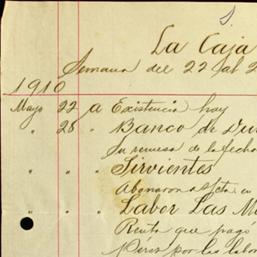 La Caja
Semana del 22 al 2
1910
Mayo 22 a Existencia hoy
" 28 " Banco de
Su remesa de la fecha
" " " Sirvientes
Abonaron a/cta en
" " " Labor Las M
Renta que pagó
Pérez por las labor